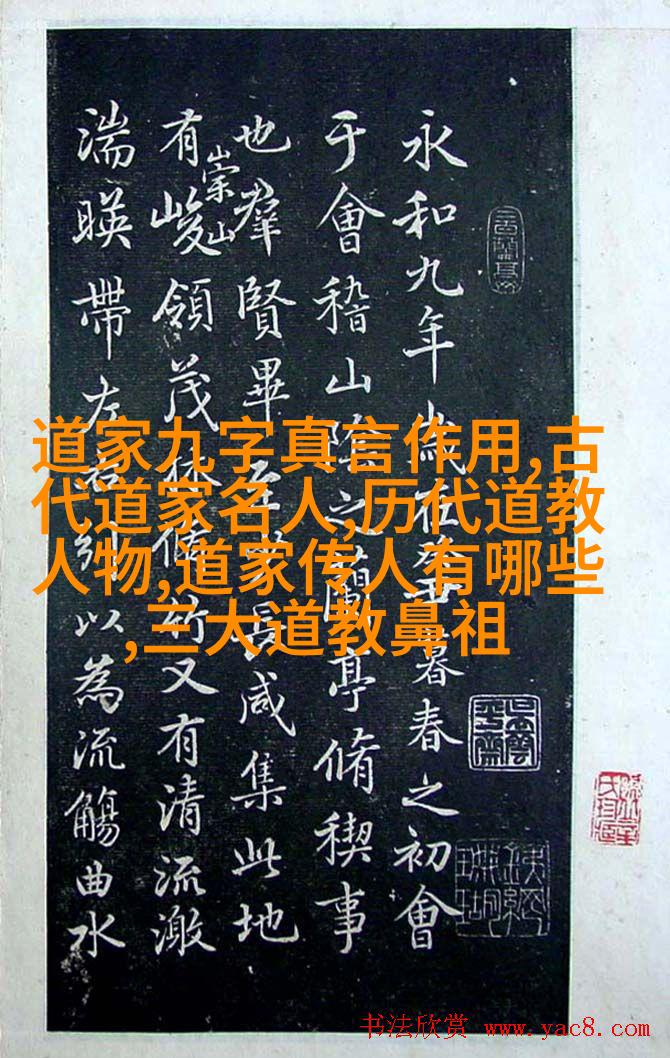 永和九年歲在癸丑暮春之初會
于會稽山陰之蘭亭脩稧事
也羣賢畢至少長咸集此地
有崇山峻領茂林脩竹又有清流激
湍暎帶左右引以為流觴曲水
道家九字真言作用,古
代道家名人,历代道教
人物,道家传人有哪些
,三大道教鼻祖
书法欣赏 www.yac8.com